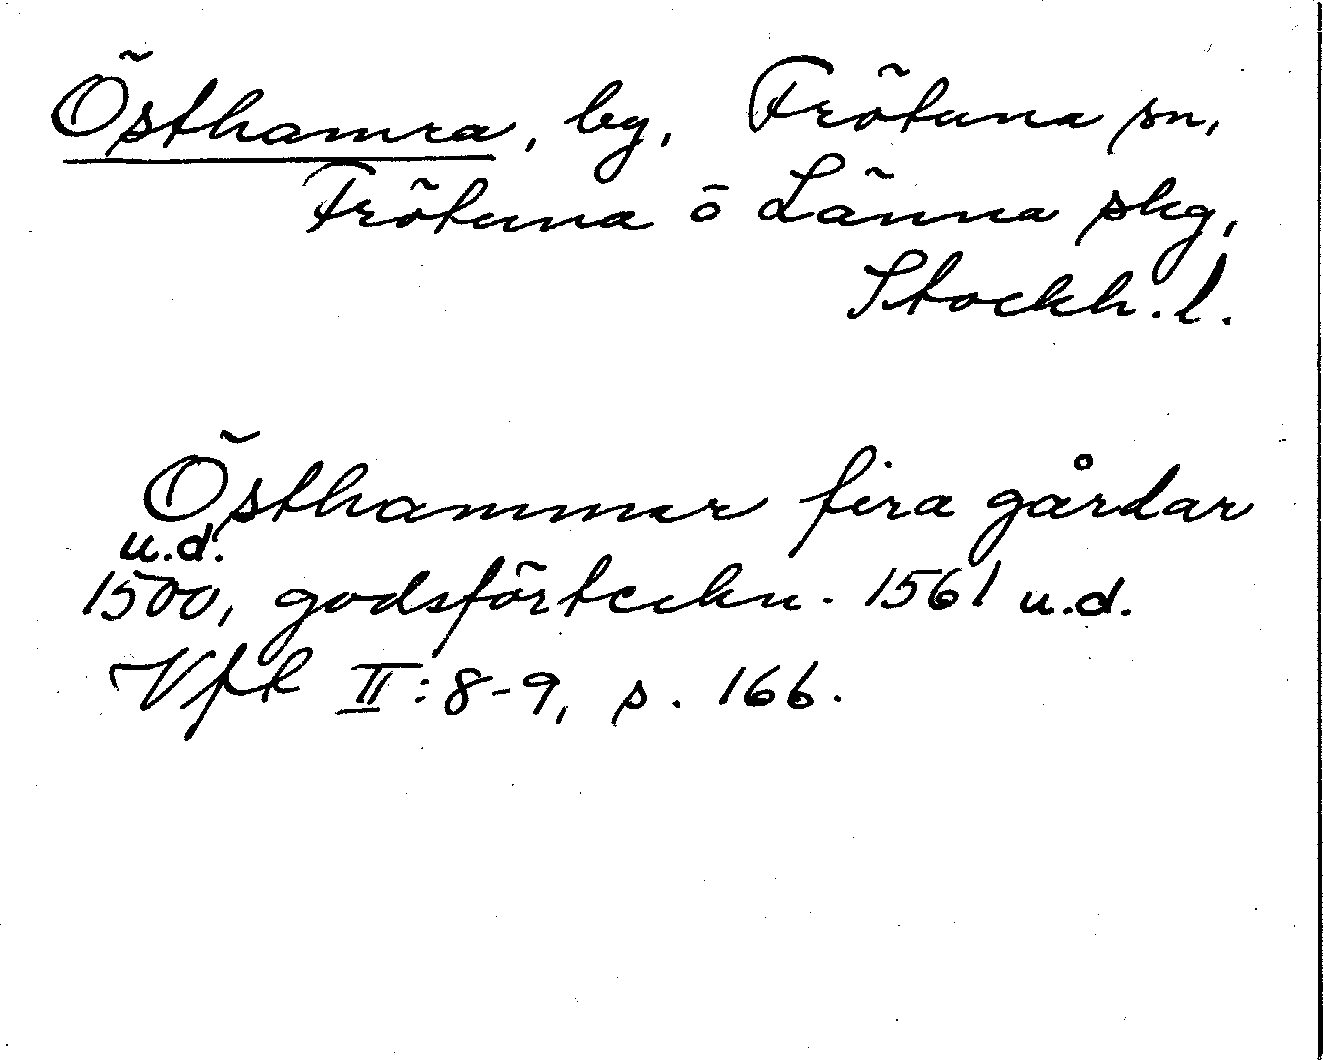 Östhamra, by, Frötuna sn,
Frötuna o Länna skg,
Stockh. l.
Östhammer fira gårdar
u.d.
1500, godsförteckn. 1561 u.d.
Vfk II:8-9, s. 166.